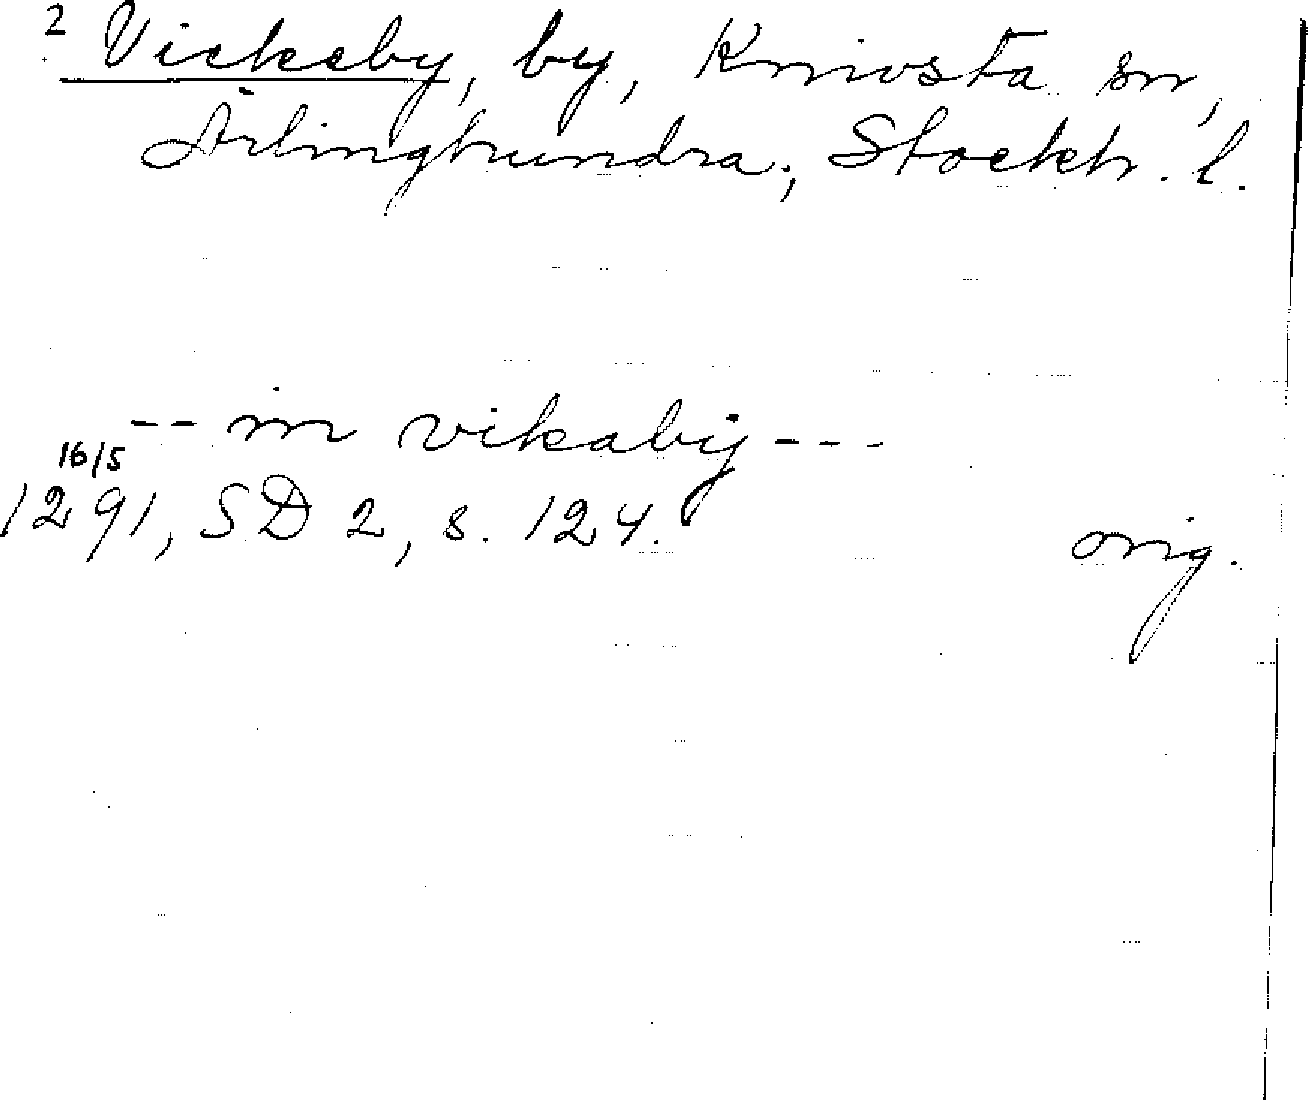 2 Vickeby, by, Knivsta sn,
Ärlinghundra, Stockh. l.
-- in vikabij ---
16/5
1291, SD 2, s. 124.
orig.